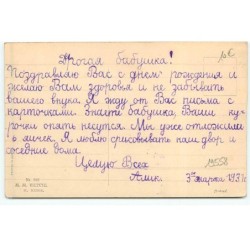 Дорогая бабушка!
Поздравляю Вас с днем рождения и
желаю Вам здоровья и не забывать
вашего внука. Я жду от Вас письма с
карточками. Знаете бабушка, Ваши ку-
рочки опять несутся. Мы уже отложили
яичек. Я люблю срисовывать наш двор и
соседние дома.
Целую Всех
Алик. 3го марта 193